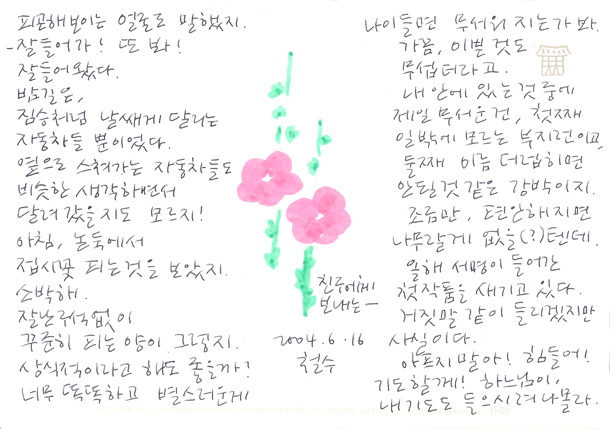 피곤해보이는 얼굴로 말했지.
-잘들어가! 또 봐!
잘들어왔다.
밤길은,
짐승처럼 날쌔게 달리는
자동차들 뿐이었다.
옆으로 스쳐가는 자동차들도
비슷한 생각하면서
달려갔을지도 모르지!
아침, 논둑에서
접시꽃 피는것을 보았지.
소박해.
잘난구석없이
꾸준히 피는 양이 그렇지.
상식적이라고 해도 좋을까?
너무 똑똑하고 별스러운게
나이들면 무서워 지는가 봐.
가끔, 이쁜 것도
무섭더라고.
내 안에 있는 것 중에
제일 무서운 건, 첫째
일밖에 모르는 부지런이고,
둘째 이름 더럽히면
안될것 같은 강박이지.
조금만, 편안해지면
나무랄게 없을(?)텐데.
올해 서명이 들어간
첫 작품을 새기고 있다.
거짓말 같이 들리겠지만
사실이다.
아프지말아! 힘들어!
기도할게! 하느님이,
내 기도도 들으시려나 몰라.
친구에게
보내는-
2004.6.16
철수